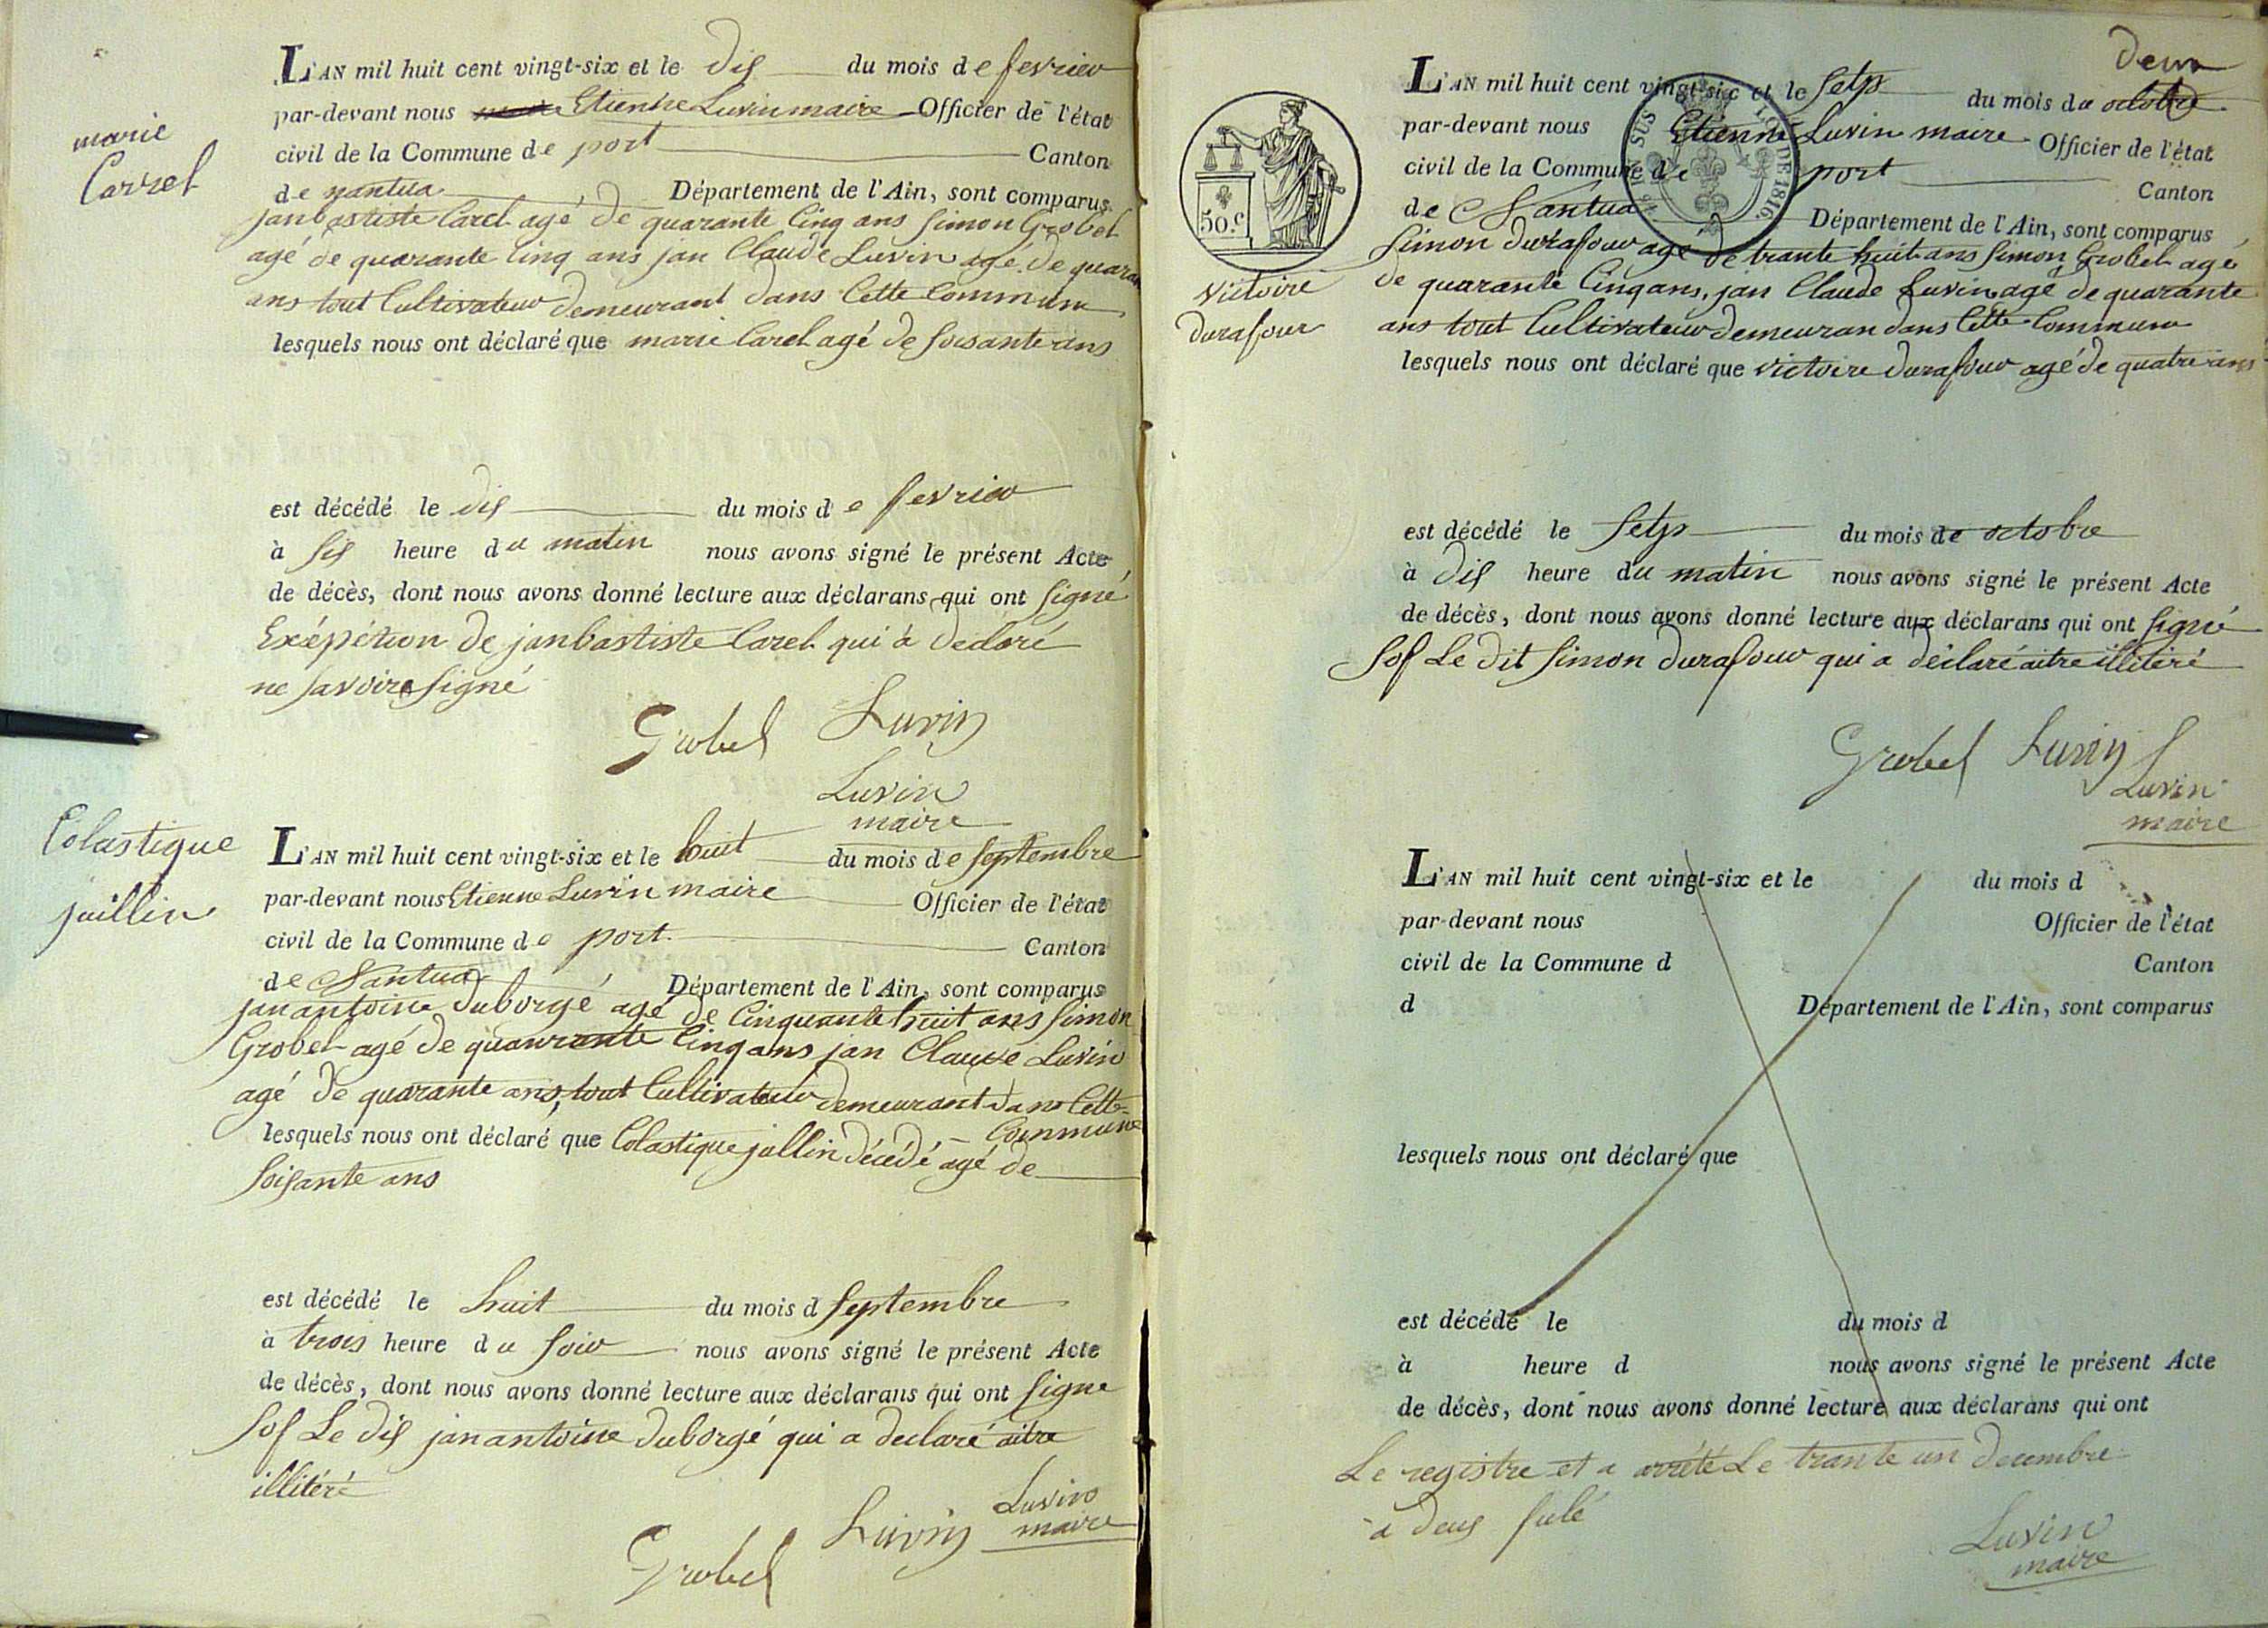 marie
Carrel
L'AN mil huit cent vingt-six et le dis du mois de fevrier
par-devant nous Etienne Luvin maire Officier de l'état
civil de la Commune de port Canton
de nantua Département de l'Ain, sont comparus
janbastiste Carel agé de quarante Cinq ans Simon Grobel
agé de quarante Cinq ans jan Claude Luvin agé de quaran
ans tout Cultivateur demeurant dans Cette Commune
lesquels nous ont déclaré que marie Carel agé de soisante ans
est décédé le dis du mois de fevrier
à sis heure du matin nous avons signé le présent Acte
de décès, dont nous avons donné lecture aux déclarans qui ont signé
Exépétion de janbastiste Carel qui à declaré
ne savoire signé
Grobel Luvin
Luvin
maire
Colastique
juillin
L'AN mil huit cent vingt-six et le huit du mois de septembre
par-devant nous Etienne Luvin maire Officier de l'état
civil de la Commune de port Canton
de Nantua Département de l'Ain, sont comparus
jan antoine duborgé agé de Cinquante huit ans Simon
Grobel agé de quarante Cinq ans jan Claude Luvin
agé de quarante ans, tout Cultivateur demeurant dans Cette
Commune
lesquels nous ont déclaré que Colastique jullin décédé agé de
soisante ans
est décédé le huit du mois d septembre
à trois heure du soir nous avons signé le présent Acte
de décès, dont nous avons donné lecture aux déclarans qui ont signe
sof Le dis jan antoine duborgé qui a declaré aitre
illitéré
Grobel Luvin Luvin
maire
deux
50.c
victoire
durafour
L'AN mil huit cent vingt-six et le setp du mois du octobre
par-devant nous Etienne Luvin maire Officier de l'état
civil de la Commune de port Canton
de Nantua Département de l'Ain, sont comparus
EN SUS LOI DE 1816.
Simon durafour agé de trante huit ans Simon Grobel agé
de quarante Cinq ans, jan Claude Luvin agé de quarante
ans tout Cultivateur demeuran dans Cette Commune
lesquels nous ont déclaré que victoire durafour agé de quatre ans
est décédé le setp du mois de octobre
à dis heure du matin nous avons signé le présent Acte
de décès, dont nous avons donné lecture aux déclarans qui ont signé
sof Le dit Simon durafour qui a déclaré aitre illitéré
Grobel Luvin
Luvin
maire
L'AN mil huit cent vingt-six et le du mois d
par-devant nous Officier de l'état
civil de la Commune d Canton
d Département de l'Ain, sont comparus
lesquels nous ont déclaré que
est décédé le du mois d
à heure d nous avons signé le présent Acte
de décès, dont nous avons donné lecture aux déclarans qui ont
Le registre et a arrété Le trante un decembre
a deus fulé
Luvin
maire